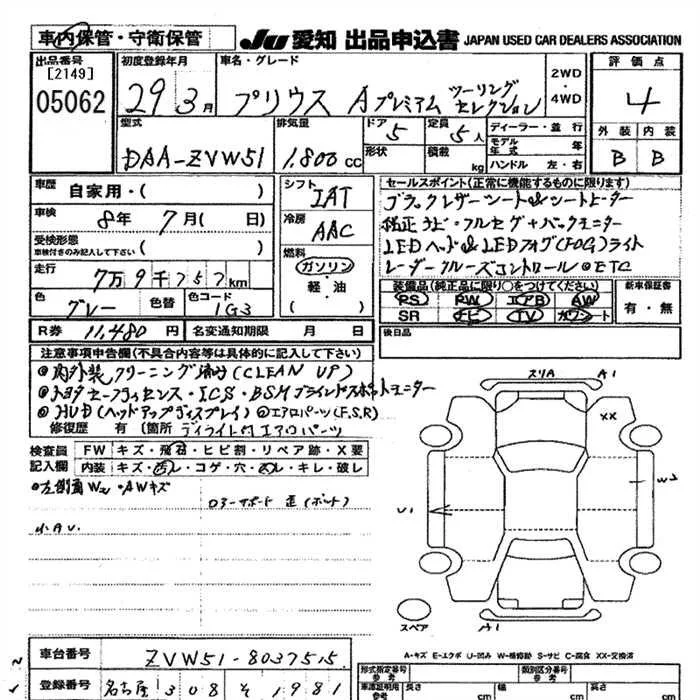 車内保管・守衛保管 JU 愛知 出品申込書 JAPAN USED CAR DEALERS ASSOCIATION
出品番号 初度登録年月 車名・グレード 評価点
[2149]
05062 29年3月 プリウス Aプレミアム ツーリングセレクション 2WD・4WD 4
型式 排気量 ドア 5 定員 5人 ディーラー・並行 外装 内装
DAA-ZVW51 1.800cc 形状 積載 kg モデル年式 年 B B
ハンドル 左・右
車歴 自家用・( ) シフト IAT セールスポイント(正常に機能するものに限ります)
車検 8年7月( 日) 冷房 AAC ブラックレザーシート&シートヒーター
受検形態 純正ナビ・フルセグ+バックモニター
車検付きのみ記入して下さい ( ) 燃料 LEDヘッド&LEDフォグ(FOG)ライト
走行 7万9千757km ガソリン レーダークルーズコントロール ETC
色 グレー 色替 色コード 1G3 軽・油 ( ) 装備品(純正品に限り○をつけてください) 新車保証書
PS PW エアB AW 有・無
SR ナビ TV カワシート
R券 11,480円 名変通知期限 月 日 後日品
注意事項申告欄(不具合内容等は具体的に記入して下さい)
内外装クリーニング済み(CLEAN UP)
トヨタセーフティセンス・ICS・BSMブラインドスポットモニター
HUD(ヘッドアップディスプレイ) エアロパーツ(F,S,R)
修復歴 有 (箇所 デイライト付エアロパーツ
検査員記入欄 FW キズ・飛石・ヒビ割・リペア跡・X要
内装 キズ・汚レ・コゲ・穴・スレ・キレ・破レ
左側面 ・AWキズ
小A.U.
スリA A1
XX
U1
A1
スペア
A-キズ E-エクボ U-凹み W-補修跡 S-サビ C-腐食 XX-交換済
車台番号 ZVW51-8037515 形式指定番号 参考 類別区分番号 参考
登録番号 名古屋 308 そ 1981 車庫証明用 参考 長さ cm 幅 cm 高さ cm